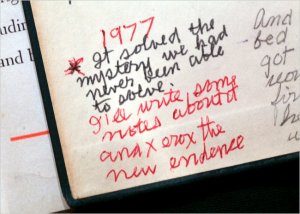 1977
* It solved the
mystery we had
never been able
to solve.
I'll write some
notes about
and xerox the
new evidence
And
bed
got